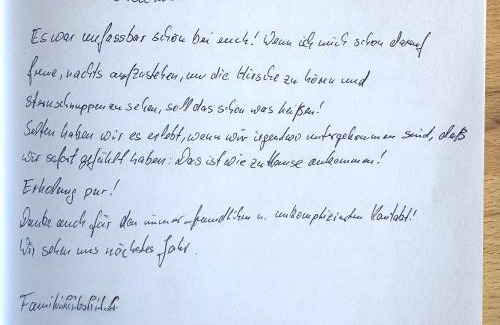 Es war unfassbar schön bei euch! Wenn ich mich schon darauf
freue, nachts aufzustehen, um die Hirsche zu hören und
Sternschnuppen zu sehen, soll das schon was heißen!
Selten haben wir es erlebt, wenn wir irgendwo untergekommen sind, daß
wir sofort gefühlt haben: Das ist wie zu Hause ankommen!
Erholung pur!
Danke auch für den immer freundlichen u. unkomplizierten Kontakt!
Wir sehen uns nächstes Jahr.